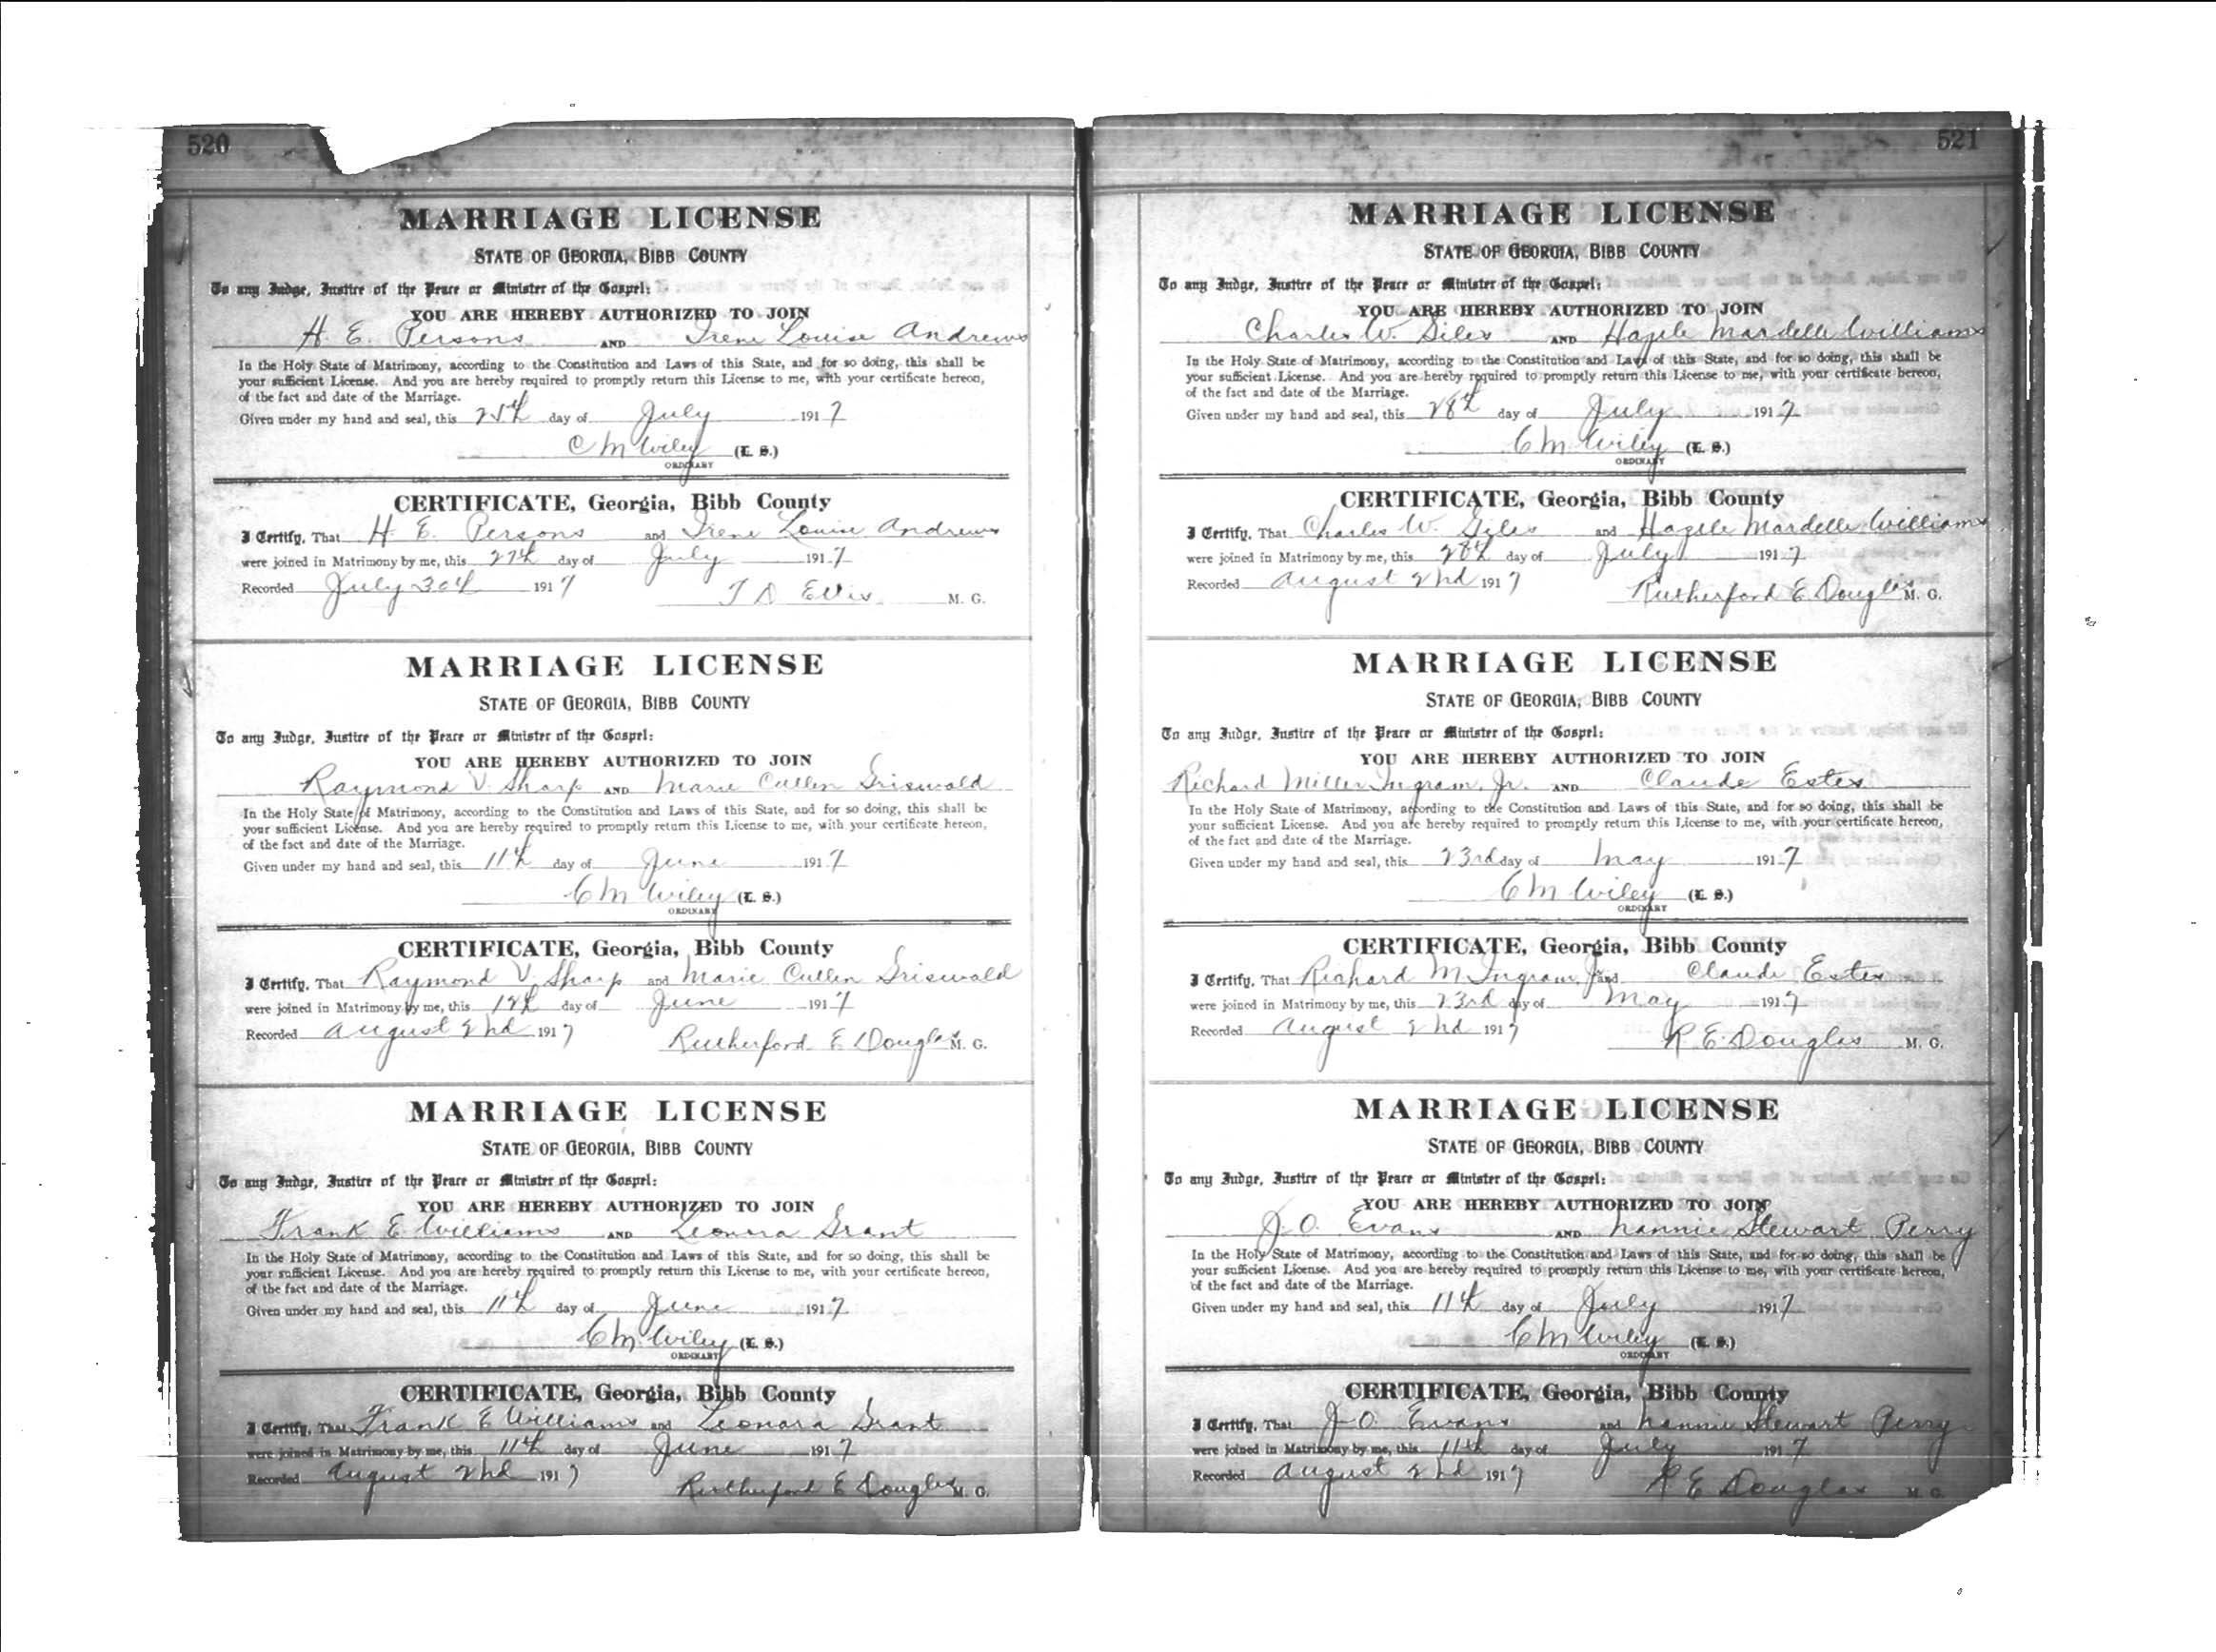 520
MARRIAGE LICENSE
STATE OF GEORGIA, BIBB COUNTY
To any Judge, Justice of the Peace or Minister of the Gospel:
YOU ARE HEREBY AUTHORIZED TO JOIN
H. E. Persons AND Irene Louise Andrews
In the Holy State of Matrimony, according to the Constitution and Laws of this State, and for so doing, this shall be
your sufficient License. And you are hereby required to promptly return this License to me, with your certificate hereon,
of the fact and date of the Marriage.
Given under my hand and seal, this day of July 1917
C M Wiley (L. S.)
ORDINARY
CERTIFICATE, Georgia, Bibb County
I Certify, That H. E. Persons and Irene Louise Andrews
were joined in Matrimony by me, this 27th day of July 1917
Recorded July 30th 1917 T D Ellis M. G.
MARRIAGE LICENSE
STATE OF GEORGIA, BIBB COUNTY
To any Judge, Justice of the Peace or Minister of the Gospel:
YOU ARE HEREBY AUTHORIZED TO JOIN
Raymond V. Sharp AND Marie Cullen Griswald
In the Holy State of Matrimony, according to the Constitution and Laws of this State, and for so doing, this shall be
your sufficient License. And you are hereby required to promptly return this License to me, with your certificate hereon,
of the fact and date of the Marriage.
Given under my hand and seal, this 11th day of June 1917
C M Wiley (L. S.)
ORDINARY
CERTIFICATE, Georgia, Bibb County
I Certify, That Raymond V. Sharp and Marie Cullen Griswald
were joined in Matrimony by me, this 12th day of June 1917
Recorded August 2nd 1917 Rutherford E Douglas M. G.
MARRIAGE LICENSE
STATE OF GEORGIA, BIBB COUNTY
To any Judge, Justice of the Peace or Minister of the Gospel:
YOU ARE HEREBY AUTHORIZED TO JOIN
Frank E Williams AND Leonora Grant
In the Holy State of Matrimony, according to the Constitution and Laws of this State, and for so doing, this shall be
your sufficient License. And you are hereby required to promptly return this License to me, with your certificate hereon,
of the fact and date of the Marriage.
Given under my hand and seal, this 11th day of June 1917
C M. Wiley (L. S.)
ORDINARY
CERTIFICATE, Georgia, Bibb County
I Certify, That Frank E Williams and Leonora Grant
were joined in Matrimony by me, this 11th day of June 1917
Recorded August 2nd 1917 Rutherford E Douglas M. G.
521
MARRIAGE LICENSE
STATE OF GEORGIA, BIBB COUNTY
To any Judge, Justice of the Peace or Minister of the Gospel:
YOU ARE HEREBY AUTHORIZED TO JOIN
Charles W. Giles AND Hazele Mardelle Williams
In the Holy State of Matrimony, according to the Constitution and Laws of this State, and for so doing, this shall be
your sufficient License. And you are hereby required to promptly return this License to me, with your certificate hereon,
of the fact and date of the Marriage.
Given under my hand and seal, this 28th day of July 1917
C M Wiley (L. S.)
ORDINARY
CERTIFICATE, Georgia, Bibb County
I Certify, That Charles W. Giles and Hazele Mardelle Williams
were joined in Matrimony by me, this 28th day of July 1917
Recorded August 2nd 1917 Rutherford E. Douglas M. G.
MARRIAGE LICENSE
STATE OF GEORGIA, BIBB COUNTY
To any Judge, Justice of the Peace or Minister of the Gospel:
YOU ARE HEREBY AUTHORIZED TO JOIN
Richard Miller Ingram, Jr. AND Claude Estes
In the Holy State of Matrimony, according to the Constitution and Laws of this State, and for so doing, this shall be
your sufficient License. And you are hereby required to promptly return this License to me, with your certificate hereon,
of the fact and date of the Marriage.
Given under my hand and seal, this 23rd day of May 1917
C M Wiley (L. S.)
ORDINARY
CERTIFICATE, Georgia, Bibb County
I Certify, That Richard M Ingram, Jr and Claude Estes
were joined in Matrimony by me, this 23rd day of May 1917
Recorded August 2nd 1917 R. E. Douglas M. G.
MARRIAGE LICENSE
STATE OF GEORGIA, BIBB COUNTY
To any Judge, Justice of the Peace or Minister of the Gospel:
YOU ARE HEREBY AUTHORIZED TO JOIN
J. O. Evans AND Nannie Stewart Perry
In the Holy State of Matrimony, according to the Constitution and Laws of this State, and for so doing, this shall be
your sufficient License. And you are hereby required to promptly return this License to me, with your certificate hereon,
of the fact and date of the Marriage.
Given under my hand and seal, this 11th day of July 1917
C M Wiley (L. S.)
ORDINARY
CERTIFICATE, Georgia, Bibb County
I Certify, That J. O. Evans and Nannie Stewart Perry
were joined in Matrimony by me, this 11th day of July 1917
Recorded August 2nd 1917 R E Douglas M. G.